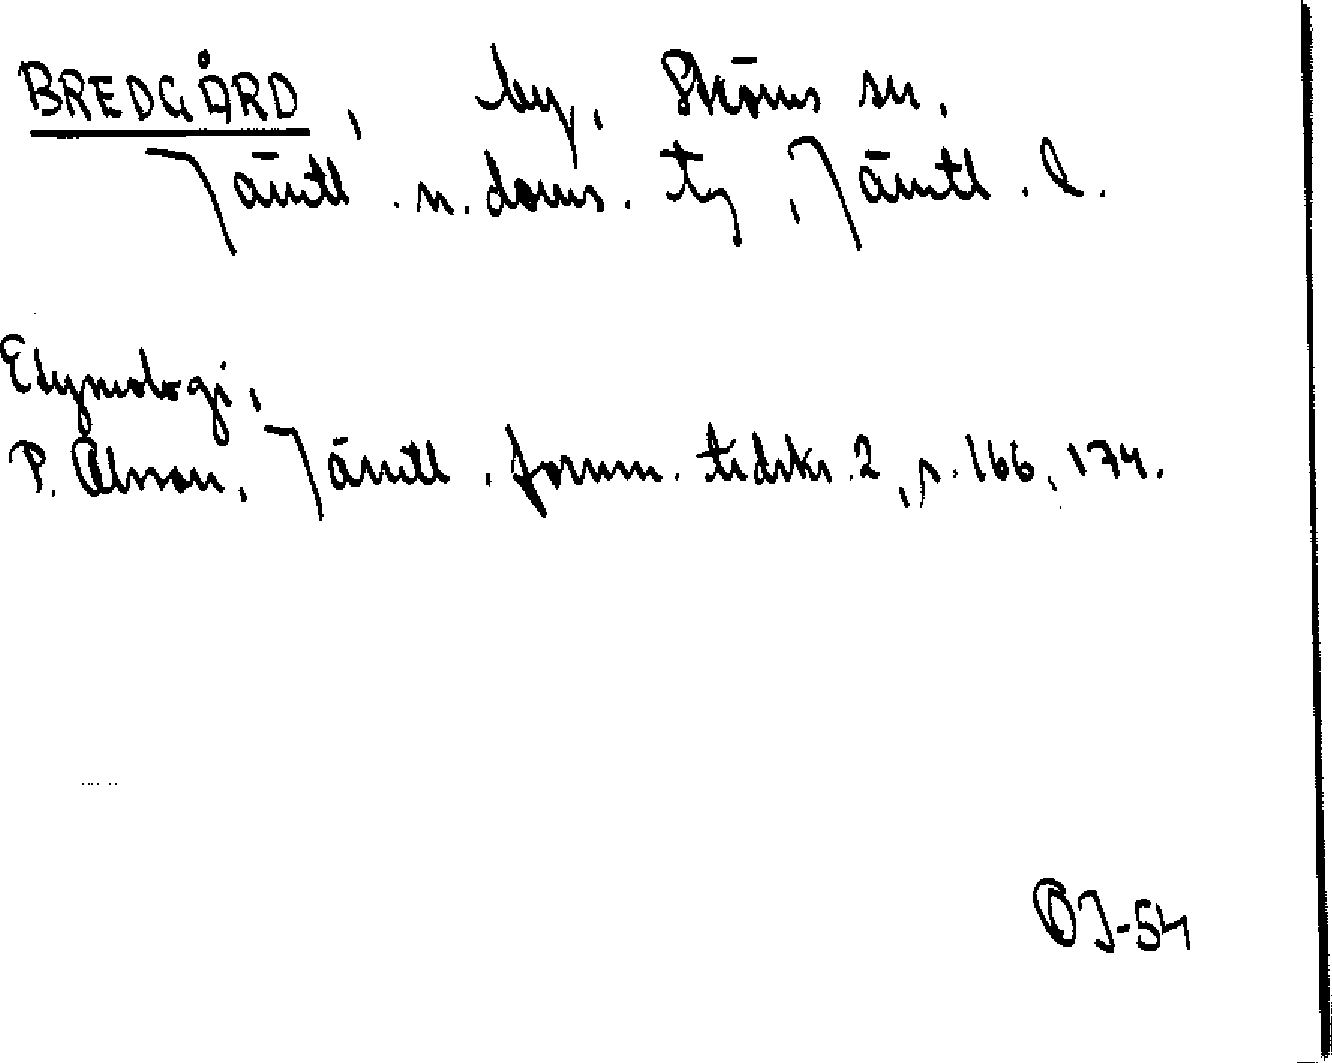 BREDGÅRD, by, Ströms sn.
Jämtl. n. doms. tg, Jämtl. l.
Etymologi,
P. Olsson, Jämtl. fornm. tidskr. 2, s. 166, 174.
OJ-54